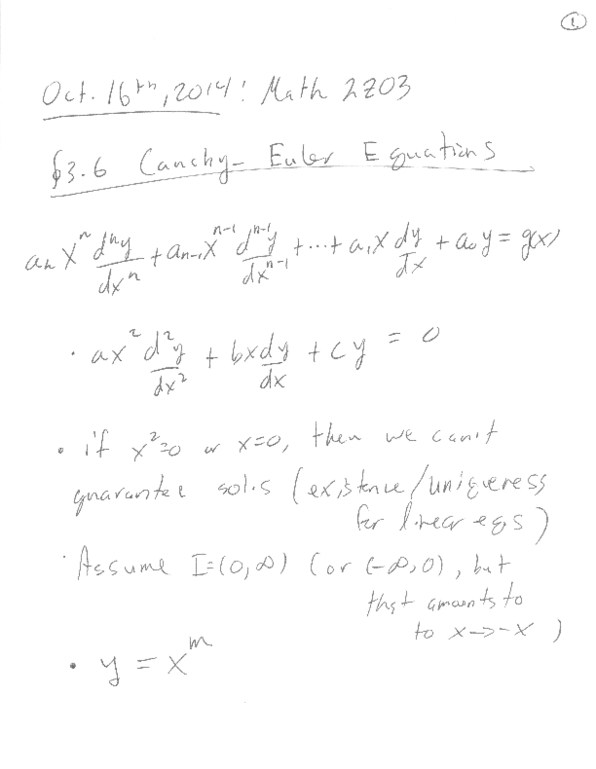 ①
Oct. 16th, 2014: Math 2Z03
§3.6 Cauchy-Euler Equations
aₙ xⁿ dⁿy/dxⁿ + aₙ₋₁ xⁿ⁻¹ dⁿ⁻¹y/dxⁿ⁻¹ + ... + a₁ x dy/dx + a₀ y = g(x)
· ax² d²y/dx² + bx dy/dx + cy = 0
• if x²=0 or x=0, then we can't
guarantee sol.s (existence/uniqueness
for linear eqs)
· Assume I=(0,∞) (or (-∞,0), but
that amounts to
to x->-x)
• y = xᵐ